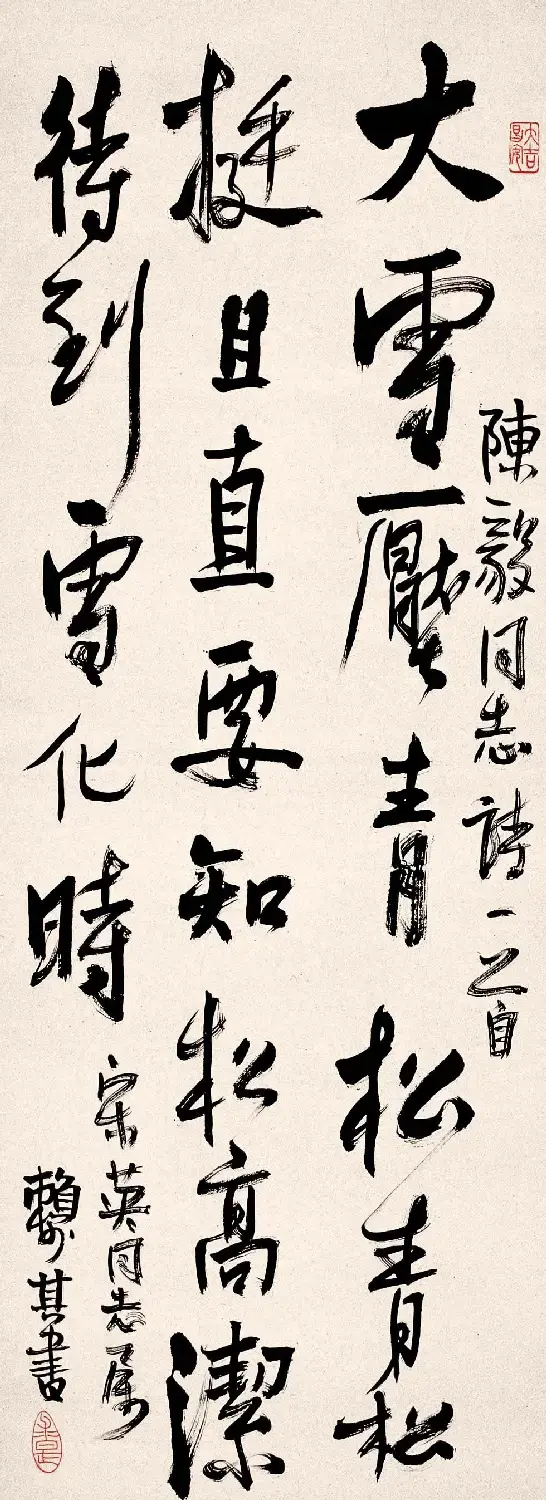 陳毅同志詩一首
大雪壓青松青松
挺且直要知松高潔
待到雪化時
宋英同志属
賴少其書